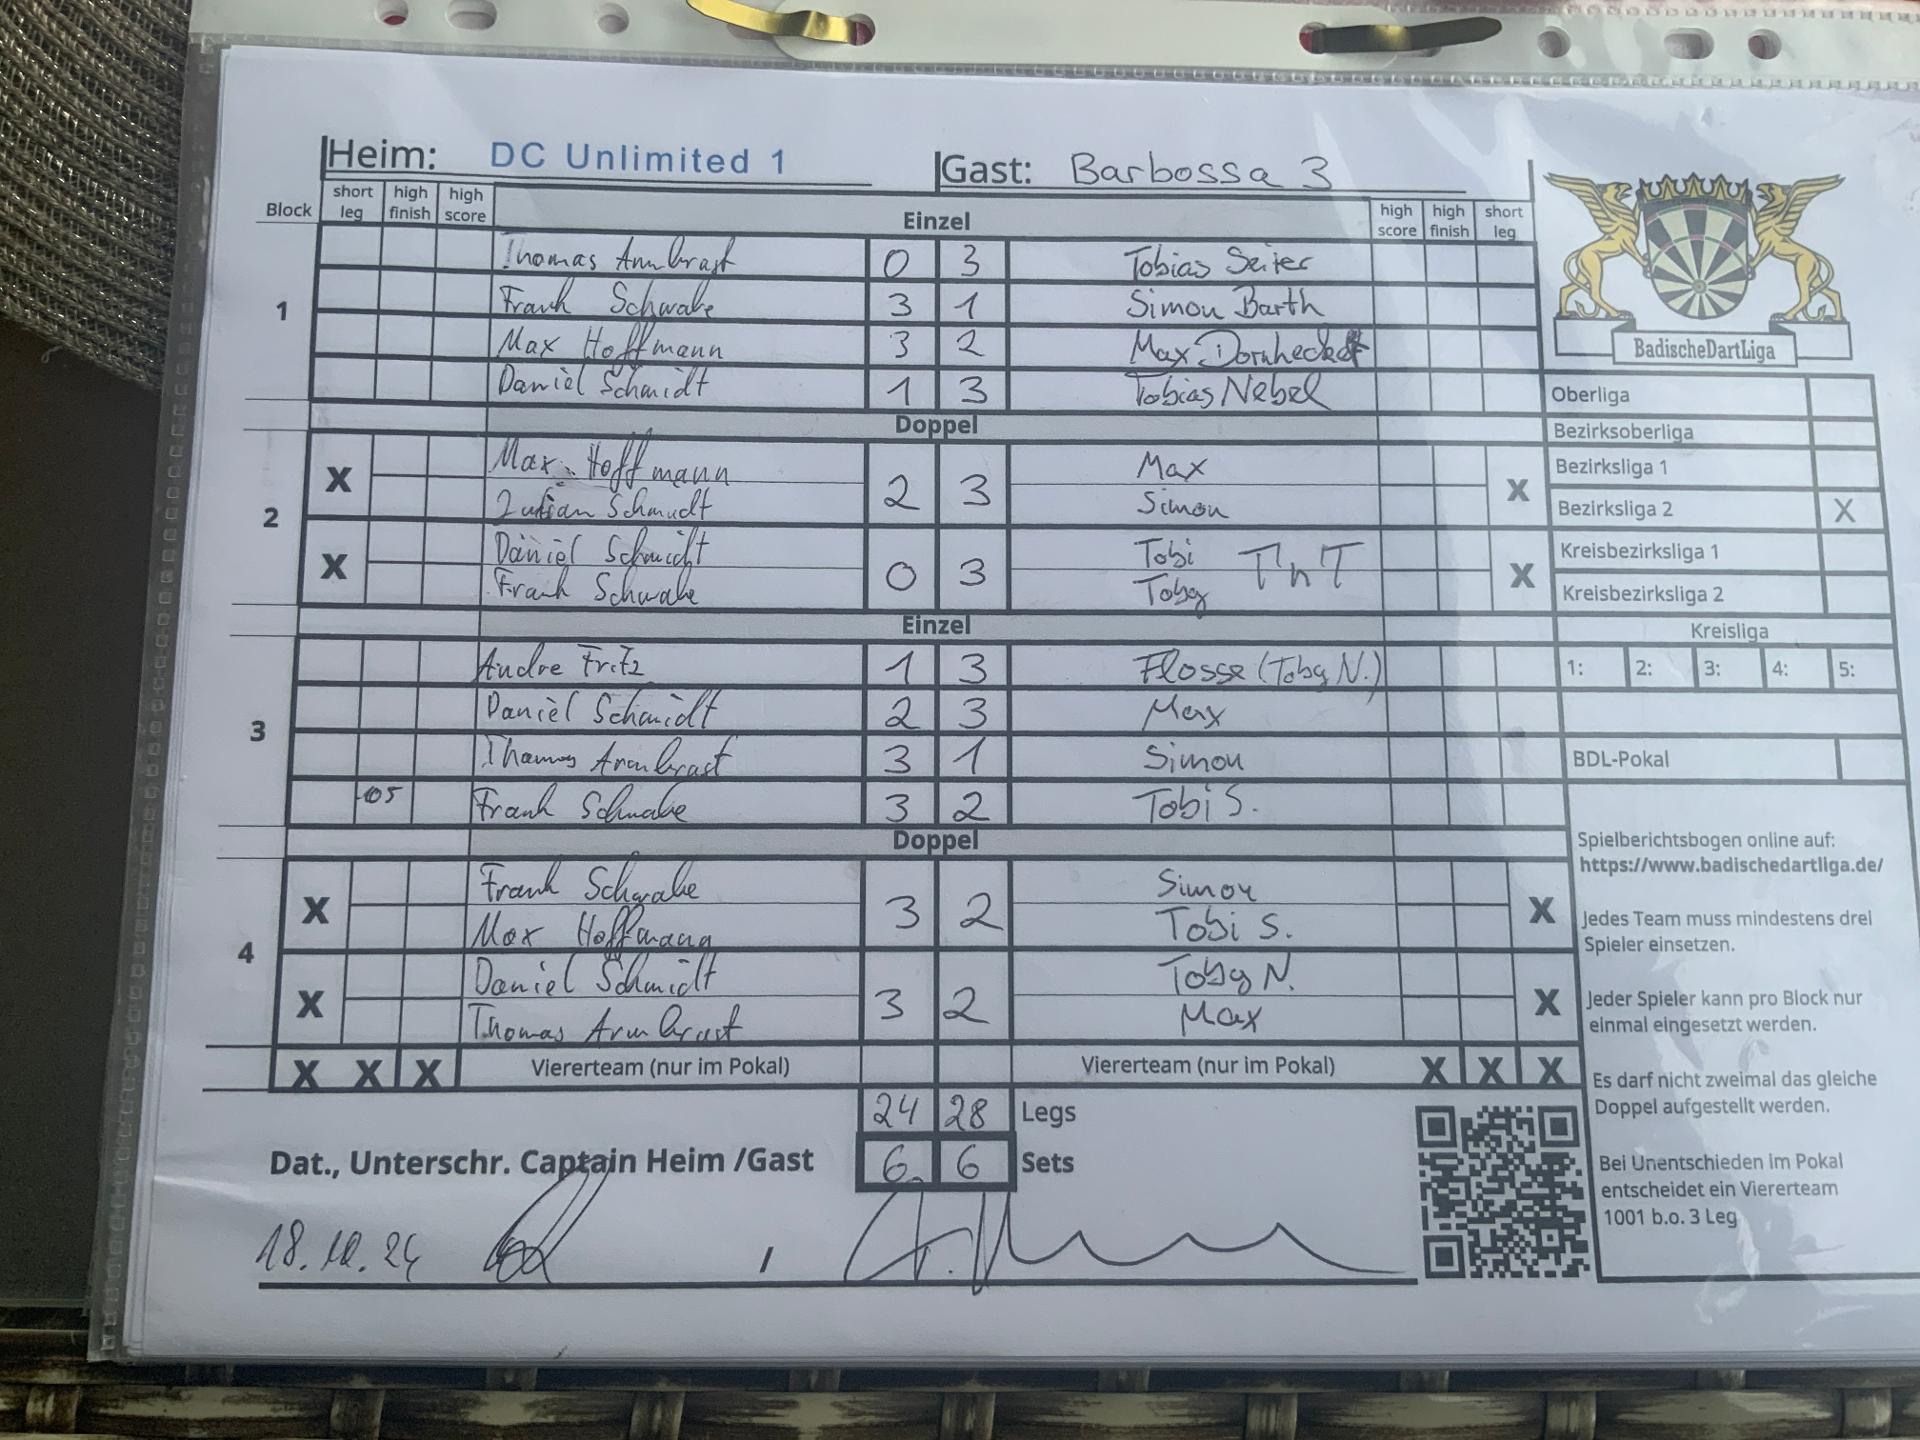 Heim: DC Unlimited 1 Gast: Barbossa 3
Block short leg high finish high score Einzel high score high finish short leg
1
Thomas Armbrast 0 3 Tobias Seiter
Frank Schwabe 3 1 Simon Barth
Max Hoffmann 3 2 Max Dornhecker
Daniel Schmidt 1 3 Tobias Nebel
Doppel
2
X Max Hoffmann 2 3 Max X
Julian Schmidt Simon
X Daniel Schmidt 0 3 Tobi TnT X
Frank Schwabe Toby
Einzel
3
Andre Fritz 1 3 Flosse (Toby N.)
Daniel Schmidt 2 3 Max
Thomas Armbrast 3 1 Simon
105 Frank Schwabe 3 2 Tobi S.
Doppel
4
X Frank Schwabe 3 2 Simon X
Max Hoffmann Tobi S.
X Daniel Schmidt 3 2 Toby N. X
Thomas Armbrast Max
X X X Viererteam (nur im Pokal) Viererteam (nur im Pokal) X X X
24 28 Legs
Dat., Unterschr. Captain Heim /Gast 6 6 Sets
18.10.24 /
BadischeDartLiga
Oberliga
Bezirksoberliga
Bezirksliga 1
Bezirksliga 2 X
Kreisbezirksliga 1
Kreisbezirksliga 2
Kreisliga
1: 2: 3: 4: 5:
BDL-Pokal
Spielberichtsbogen online auf:
https://www.badischedartliga.de/
Jedes Team muss mindestens drei
Spieler einsetzen.
Jeder Spieler kann pro Block nur
einmal eingesetzt werden.
Es darf nicht zweimal das gleiche
Doppel aufgestellt werden.
Bei Unentschieden im Pokal
entscheidet ein Viererteam
1001 b.o. 3 Leg